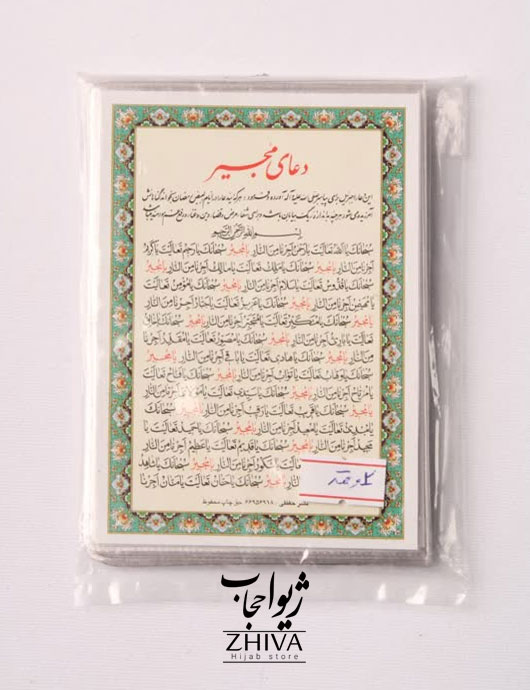 دعای مجیر
بسم الله الرحمن الرحیم
سُبْحانَكَ یا اَللهُ تَعالَیْتَ یا رَحْمنُ اَجِرْنا مِنَ النّارِ یا مُجیرُ سُبْحانَكَ یا رَحیمُ تَعالَیْتَ یا كَریمُ
اَجِرْنا مِنَ النّارِ یا مُجیرُ سُبْحانَكَ یا مَلِكُ تَعالَیْتَ یا مالِكُ اَجِرْنا مِنَ النّارِ یا مُجیرُ
سُبْحانَكَ یا قُدُّوسُ تَعالَیْتَ یا سَلامُ اَجِرْنا مِنَ النّارِ یا مُجیرُ سُبْحانَكَ یا مُؤْمِنُ تَعالَیْتَ
یا مُهَیْمِنُ اَجِرْنا مِنَ النّارِ یا مُجیرُ سُبْحانَكَ یا عَزیزُ تَعالَیْتَ یا جَبّارُ اَجِرْنا مِنَ النّارِ
یا مُجیرُ سُبْحانَكَ یا مُتَكَبِّرُ تَعالَیْتَ یا مُتَجَبِّرُ اَجِرْنا مِنَ النّارِ یا مُجیرُ سُبْحانَكَ یا خالِقُ
تَعالَیْتَ یا بارِئُ اَجِرْنا مِنَ النّارِ یا مُجیرُ سُبْحانَكَ یا مُصَوِّرُ تَعالَیْتَ یا مُقَدِّرُ اَجِرْنا
مِنَ النّارِ یا مُجیرُ سُبْحانَكَ یا هادی تَعالَیْتَ یا باقی اَجِرْنا مِنَ النّارِ یا مُجیرُ
سُبْحانَكَ یا وَهّابُ تَعالَیْتَ یا تَوّابُ اَجِرْنا مِنَ النّارِ یا مُجیرُ سُبْحانَكَ یا فَتّاحُ تَعالَیْتَ
یا مُرْتاحُ اَجِرْنا مِنَ النّارِ یا مُجیرُ سُبْحانَكَ یا سَیِّدی تَعالَیْتَ یا مَوْلایَ اَجِرْنا مِنَ النّارِ
یا مُجیرُ سُبْحانَكَ یا قَریبُ تَعالَیْتَ یا رَقیبُ اَجِرْنا مِنَ النّارِ یا مُجیرُ سُبْحانَكَ
یا مُبْدِئُ تَعالَیْتَ یا مُعیدُ اَجِرْنا مِنَ النّارِ یا مُجیرُ سُبْحانَكَ یا حَمیدُ تَعالَیْتَ یا
مَجیدُ اَجِرْنا مِنَ النّارِ یا مُجیرُ سُبْحانَكَ یا قَدیمُ تَعالَیْتَ یا عَظیمُ اَجِرْنا مِنَ النّارِ
تَعالَیْتَ یا شَكُورُ اَجِرْنا مِنَ النّارِ یا مُجیرُ سُبْحانَكَ یا شاهِدُ
النّارِ یا مُجیرُ سُبْحانَكَ یا حَنّانُ تَعالَیْتَ یا مَنّانُ اَجِرْنا
۶۶۹۵۶۹۶۸ حق چاپ محفوظ
ژیوا حجاب
ZHIVA
Hijab store